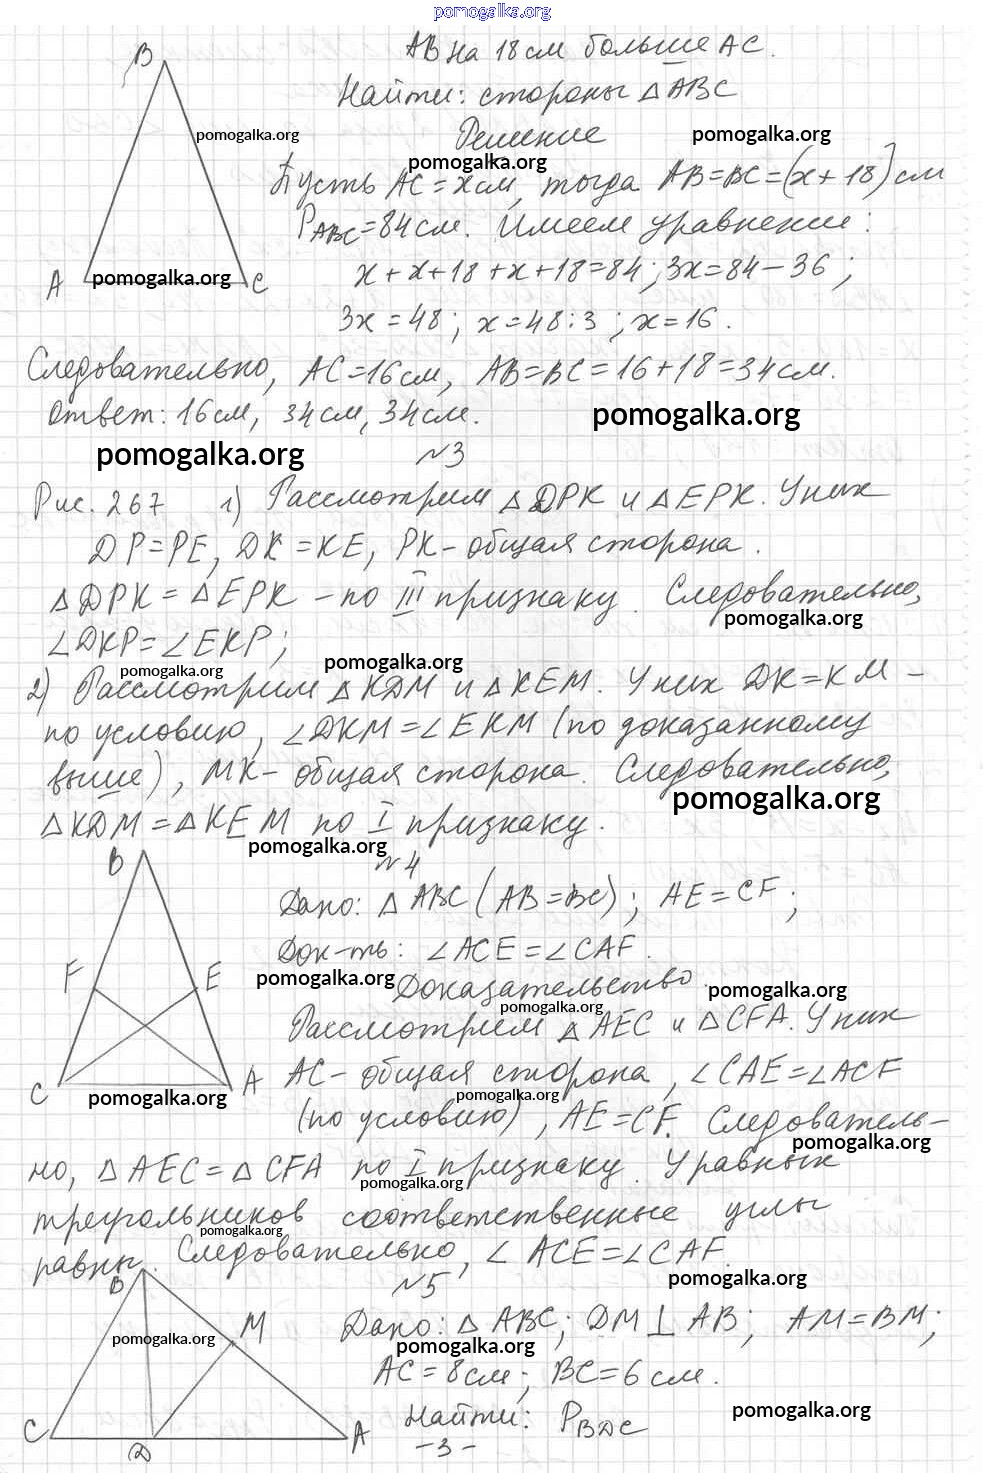 pomogalka.org
В
АВ на 18 см больше АС.
Найти: стороны △ АВС
pomogalka.org
Решение
pomogalka.org
pomogalka.org
Пусть АС = х см, тогда АВ=ВС=(х+18) см
P ABC = 84 см. Имеем уравнение:
А pomogalka.org С
х + х + 18 + х + 18 = 84; 3х = 84 - 36;
3х = 48; х = 48 : 3; х = 16.
Следовательно, АС = 16 см, АВ = ВС = 16 + 18 = 34 см.
Ответ: 16 см, 34 см, 34 см.
pomogalka.org
pomogalka.org
№3
Рис. 267 1) Рассмотрим △ DPK и △ EPK. У них
DP = PE, DK = KE, PK - общая сторона.
△ DPK = △ EPK - по III признаку. Следовательно,
pomogalka.org
∠DKP = ∠EKP;
pomogalka.org
pomogalka.org
2) Рассмотрим △ KDM и △ KEM. У них DK = KM -
по условию, ∠DKM = ∠EKM (по доказанному
выше), MK - общая сторона. Следовательно,
pomogalka.org
△ KDM = △ KEM по I признаку.
pomogalka.org
№4
В
Дано: △ ABC (AB = BC); AE = CF;
Док-ть: ∠ACE = ∠CAF.
F E
pomogalka.org
Доказательство.
pomogalka.org
pomogalka.org
Рассмотрим △ AEC и △ CFA. У них
С А
AC - общая сторона, ∠CAE = ∠ACF
pomogalka.org
pomogalka.org
(по условию), AE = CF. Следователь-
pomogalka.org
но, △ AEC = △ CFA по I признаку. У равных
pomogalka.org
треугольников соответственные углы
pomogalka.org
равны. Следовательно, ∠ ACE = ∠CAF.
pomogalka.org
№5
В
М
pomogalka.org
Дано: △ ABC; DM ⊥ AB; AM = BM;
pomogalka.org
AC = 8 см; BC = 6 см.
pomogalka.org
Найти: P BDC
С D А
-3-